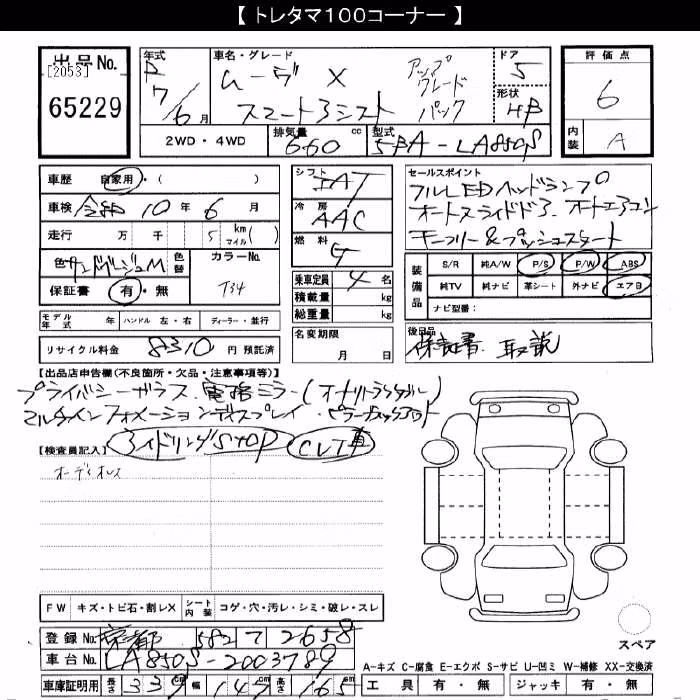 【 トレタマ100コーナー 】
出品No. [2053] 65229
年式 R 7/6月
車名・グレード ムーヴ X アップグレードパック
スマートアシスト
ドア 5
形状 HB
評価点 6
内装 A
2WD・4WD
排気量 660 cc
型式 5BA-LA850S
車歴 自家用・( )
車検 令和 10年 6月
走行 万 千 5 km マイル( )
色 サンドベージュM 色替 カラーNo. T34
保証書 有・無
モデル年式 年 ハンドル 左・右 ディーラー・並行
リサイクル料金 8310 円 預託済
シフト IAT
冷房 AAC
燃料 G
乗車定員 4 名
積載量 kg
総重量 kg
名変期限 月 日
セールスポイント
フルLEDヘッドランプ
オートスライドドア、オートエアコン
キーフリー&プッシュスタート
装備品 S/R 純A/W P/S P/W ABS
純TV 純ナビ 革シート 外ナビ エアB
ナビ型番:
後日品
保証書、取説
【出品店申告欄(不良箇所・欠品・注意事項等)】
プライバシーガラス、電格ミラー(オートリトラクタブル)
マルチインフォメーションディスプレイ・
アイドリングSTOP CVT車
【検査員記入】
オーディオレス
FW キズ・トビ石・割レX シート内装 コゲ・穴・汚レ・シミ・破レ・スレ
登録No. 京都 582 7 2658
車台No. LA850S-2003789
車庫証明用 長さ 339 cm 幅 147 cm 高さ 165 cm
スペア
A-キズ C-腐食 E-エクボ S-サビ U-凹ミ W-補修 XX-交換済
工具 有・無 ジャッキ 有・無